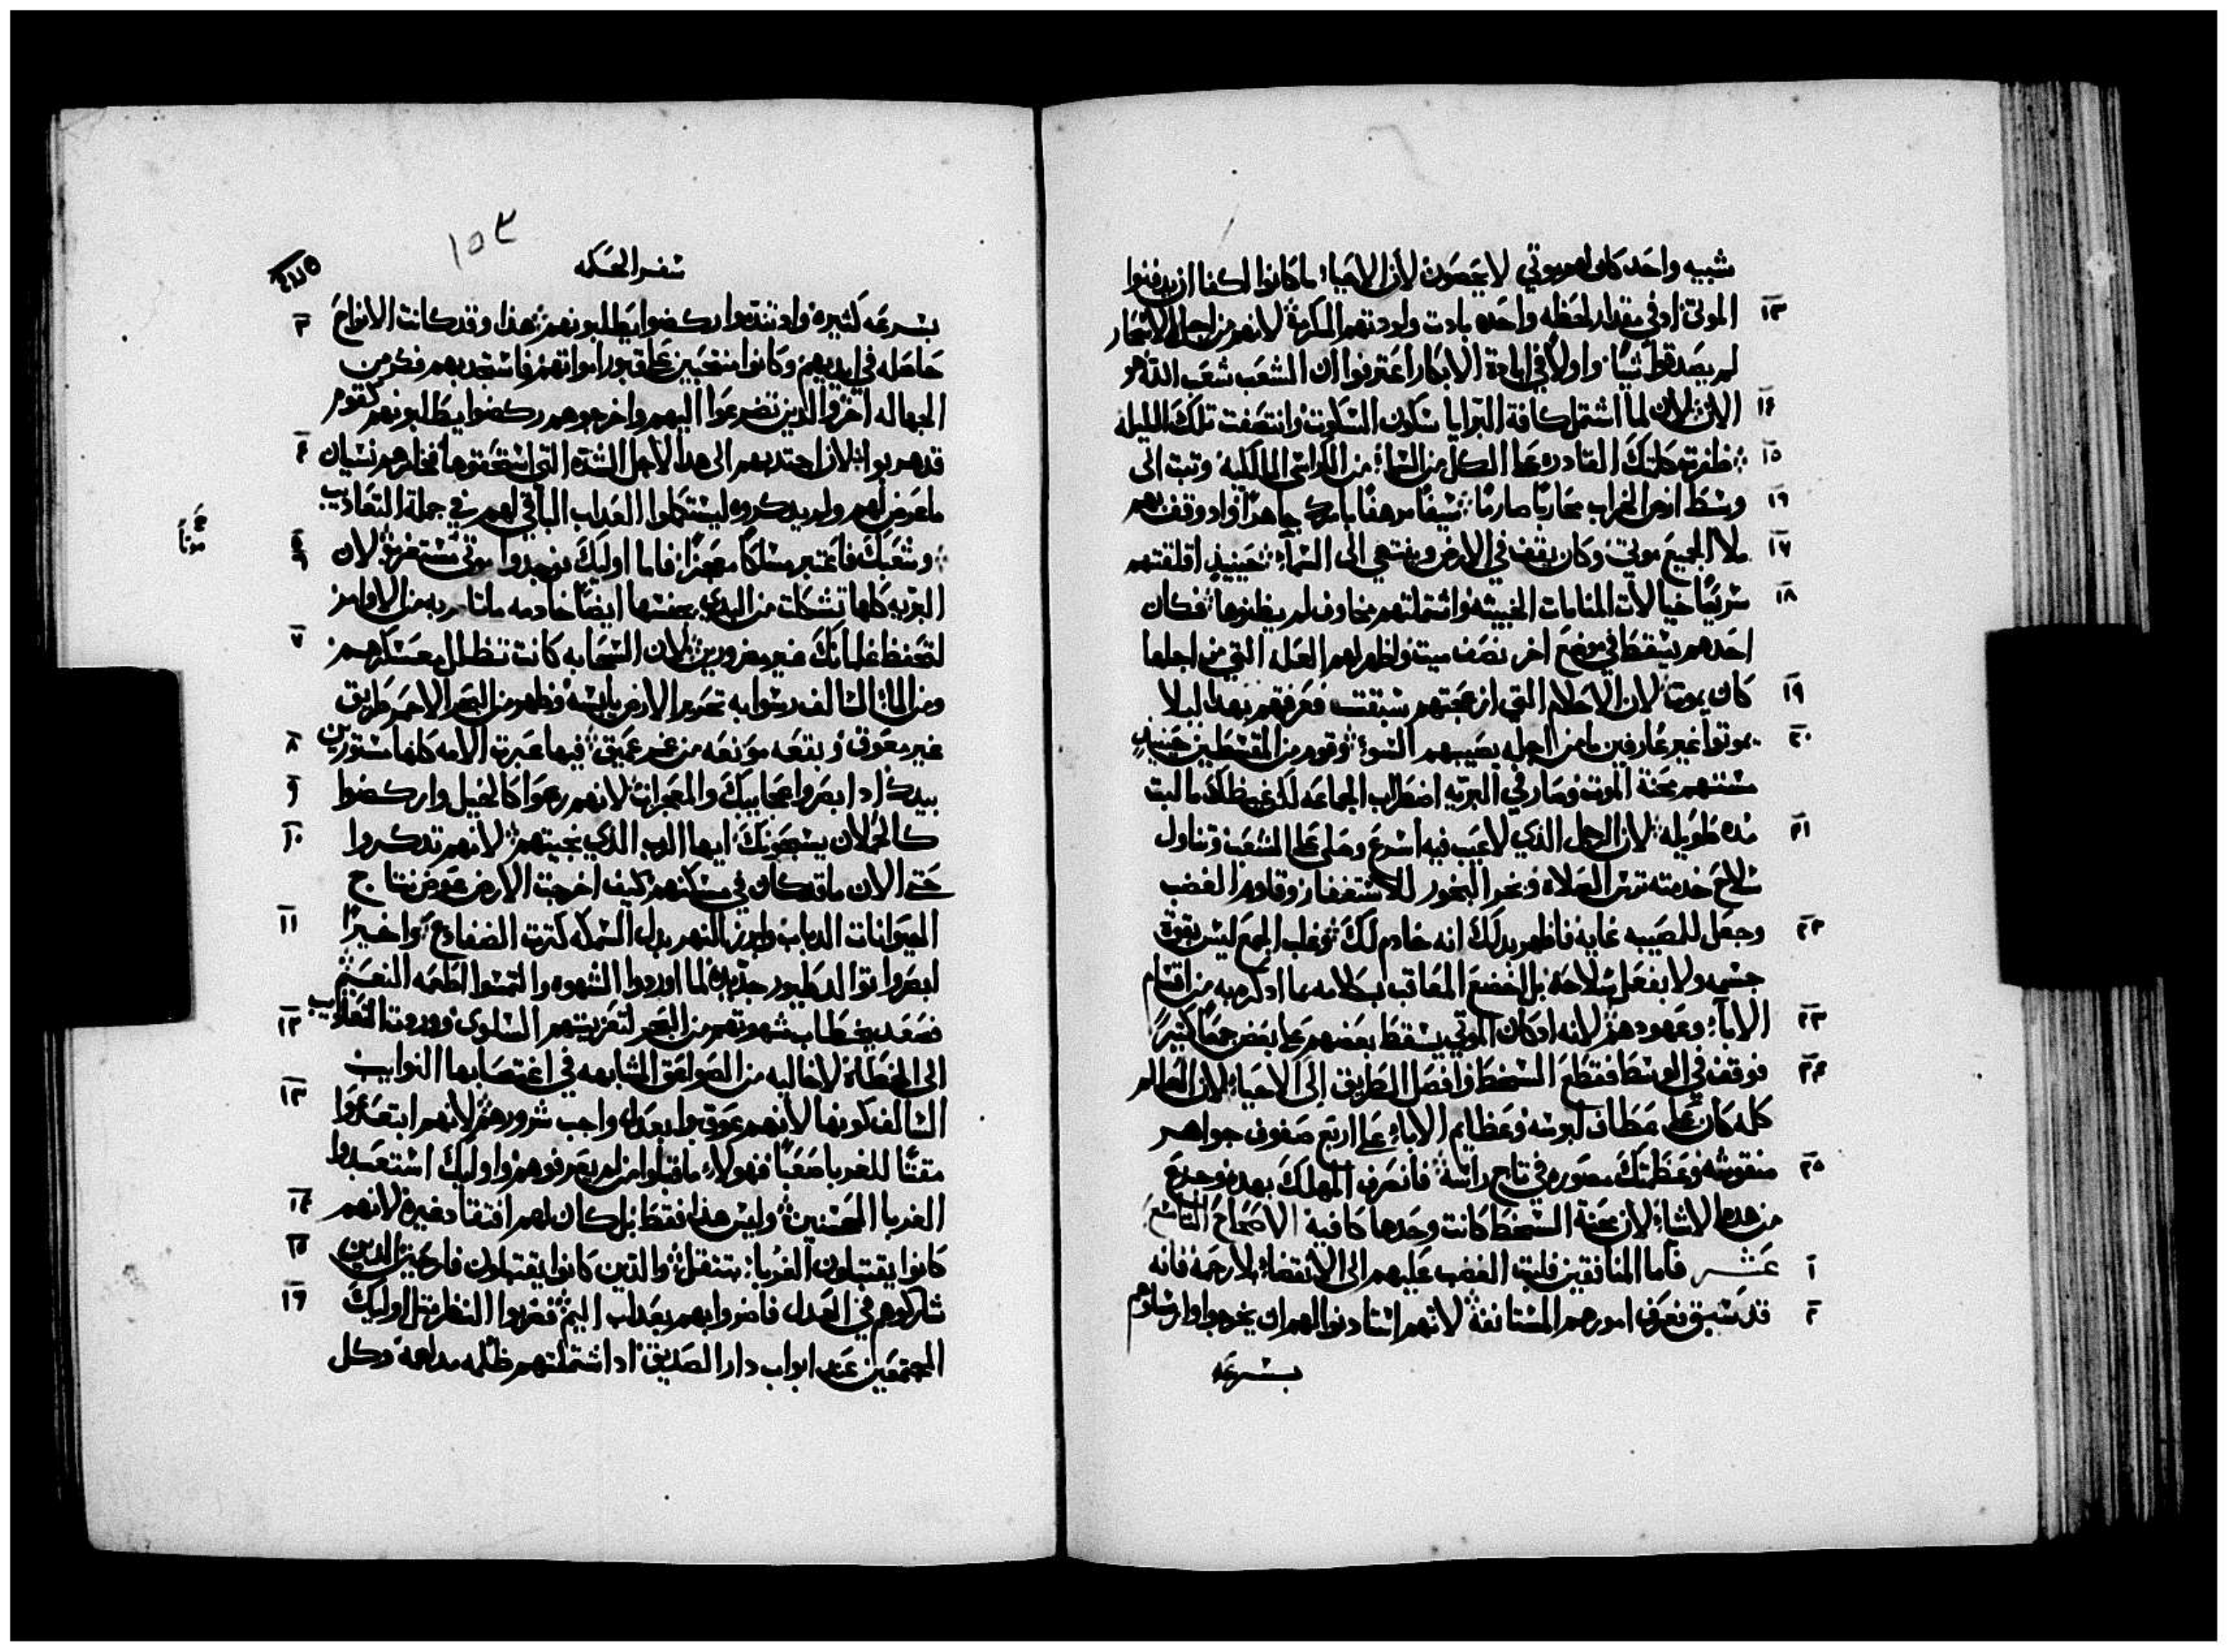 شبيه واحد كان لهم موتي لا يحصون لان الاحيا ما كانوا اكفا ان يدفنوا
١٣ الموتي اذ في مقدار لحظه واحده بادت ولودتهم المكرمة لانهم من اجل الاسحار
لم يصدقوا شيا واولا في ابادة الابكار اعترفوا ان الشعب شعب الله هو
١٤ الان لان لما اشتمل كافة البرايا سكون السكوت وانتصفت تلك الليله
١٥ ظفرت كلمتك القادره علي الكل من السما من الكراسي المالكيه وثبت الي
١٦ وسط ارض الخراب محاربا صارما سيفا مرهفا بامرك جاهرا واد وقف بهم
١٧ ملا الجميع موتي وكان يقف في الارض وينتهي الي السما حينيذ اقلقتهم
١٨ سريعا خيالات المنامات الخبيثه واشتملتهم مخاوف لم يظنوها فكان
احدهم يسقط في موضع اخر نصف ميت واظهر لهم العله التي من اجلها
١٩ كان يموت لان الاحلام التي ازعجتهم سبقت فعرفتهم بهدا ليلا
٢٠ يموتوا غير عارفين ما من اجله يصيبهم السو وقوم من المقسطين حينيد
مستهم محنة الموت وصار في البريه اضطراب الجماعه لكن غيظك ما لبت
٢١ مده طويله لان الرجل الذي لا عيب فيه اسرع وصلي علي الشعب وتناول
سلاح خدمته ترس الصلاه وبخر البخور للاستغفار وقاوم الغضب
٢٢ وجعل للمصيبه غايه فاظهر بدلك انه خادم لك وغلب الجمع ليس بقوة
جسم ولا بفعل سلاحه بل اخضع المعاقب بكلامه بما ادكر به من اقسام
٢٣ الابا وعهودهم لانه اد كان الموتي يسقط بعضهم علي بعض جمعا كثيرا
٢٤ فوقف في الوسط فقطع السخط وافصل الطريق الي الاحيا لان العالم
كله كان علي عطاف لبوسه وعظايم الابا علي اربع صفوف جواهر
٢٥ منقوشه وعظمتك مصوره في تاج راسه فانصرف المهلك بهده وجزع
من هده الاشيا لان محنة السخط كانت وحدها كافية الاصحاح التاسع
١ عشر فاما المنافقين فلبث الغضب عليهم الي الانقضا بلا رحمه فانه
٢ قد سبق فعرف امورهم المستانفة لانهم استادنوا لهم ان يخرجوا وارسلوهم
بسرعه
سفر الحكمه
١٥٣
بسرعه كثيره واد تندموا ركضوا يطلبونهم هذا وقد كانت الانواح ٣
حاصله في ايديهم وكانوا منتحبين علي قبور امواتهم فاستجدبهم فكر من
الجهاله اخر والدين تضرعوا اليهم واخرجوهم ركضوا يطلبونهم كقوم
قد هربوا لان اجتدبهم الي هدا الاجل الشدة التي استحقوها فخامرهم نسيان ٤
ما عرض لهم ولم يدكروه ليستكملوا العداب الباقي لهم في جملة التعاديب
وشعبك فاعتبر مسلكا معجزا فاما اوليك فوجدوا موتي مستغربه لان ٥ ٦
البريه كلها تشكلت من البدي بجنسها ايضا خادمه ما تامر به من الاوامر
لتحفظ غلمانك غير مضرورين لان السحابه كانت تظلل معسكرهم ٧
ومن الماء السالف رسوا به تحرير الارض يابسه وظهر من البحر الاحمر طريق
غير معوق وبقعه مونعه من غمر عميق فيها عبرت الامه كلها مستورين ٨
بيدك اد ابصروا عجايبك والمعجزات لانهم رعوا كالخيل واركضوا ٩
كالحملان يسبحونك ايها الرب الذي نجيتهم لانهم تدكروا ١٠
حتي الان ما قد كان في مسكنهم كيف اخرجت الارض عوض نتاج
الحيوانات الدباب وابرز النهر بدل السمكه كثرت الضفادع واخيرا ١١
ابصروا توالد طيور جديده لما اوردوا الشهوه والتمسوا اطعمه النعيم
فصعد بخطاب شهوتهم من البحر لتعزيتهم السلوي ووردت التعاديب ١٢
الي الخطاة لا خاليه من الصواعق المشابهه في اغتصابها النوايب
السالف كونها لانهم عوقبوا بعدل واجب شرورهم لانهم ابتعدوا ١٣
مقتا للغربا صعبا فهولاء ما قبلوا من لم يعرفوهم واوليك استعبدوا
الغربا المحسنين وليس هذا فقط بل كان لهم افتقاد غيره لانهم ١٤
كانوا يقتبلون الغربا بتنقل والذين كانوا يقتبلون فارحين الدين ١٥
شاركوهم في العدل فاضروا بهم بعداب اليم فضربوا النظر مثل اوليك ١٦
المجتمعين عند ابواب دار الصديق اد اشتملتهم ظلمه مدلهمه وكل